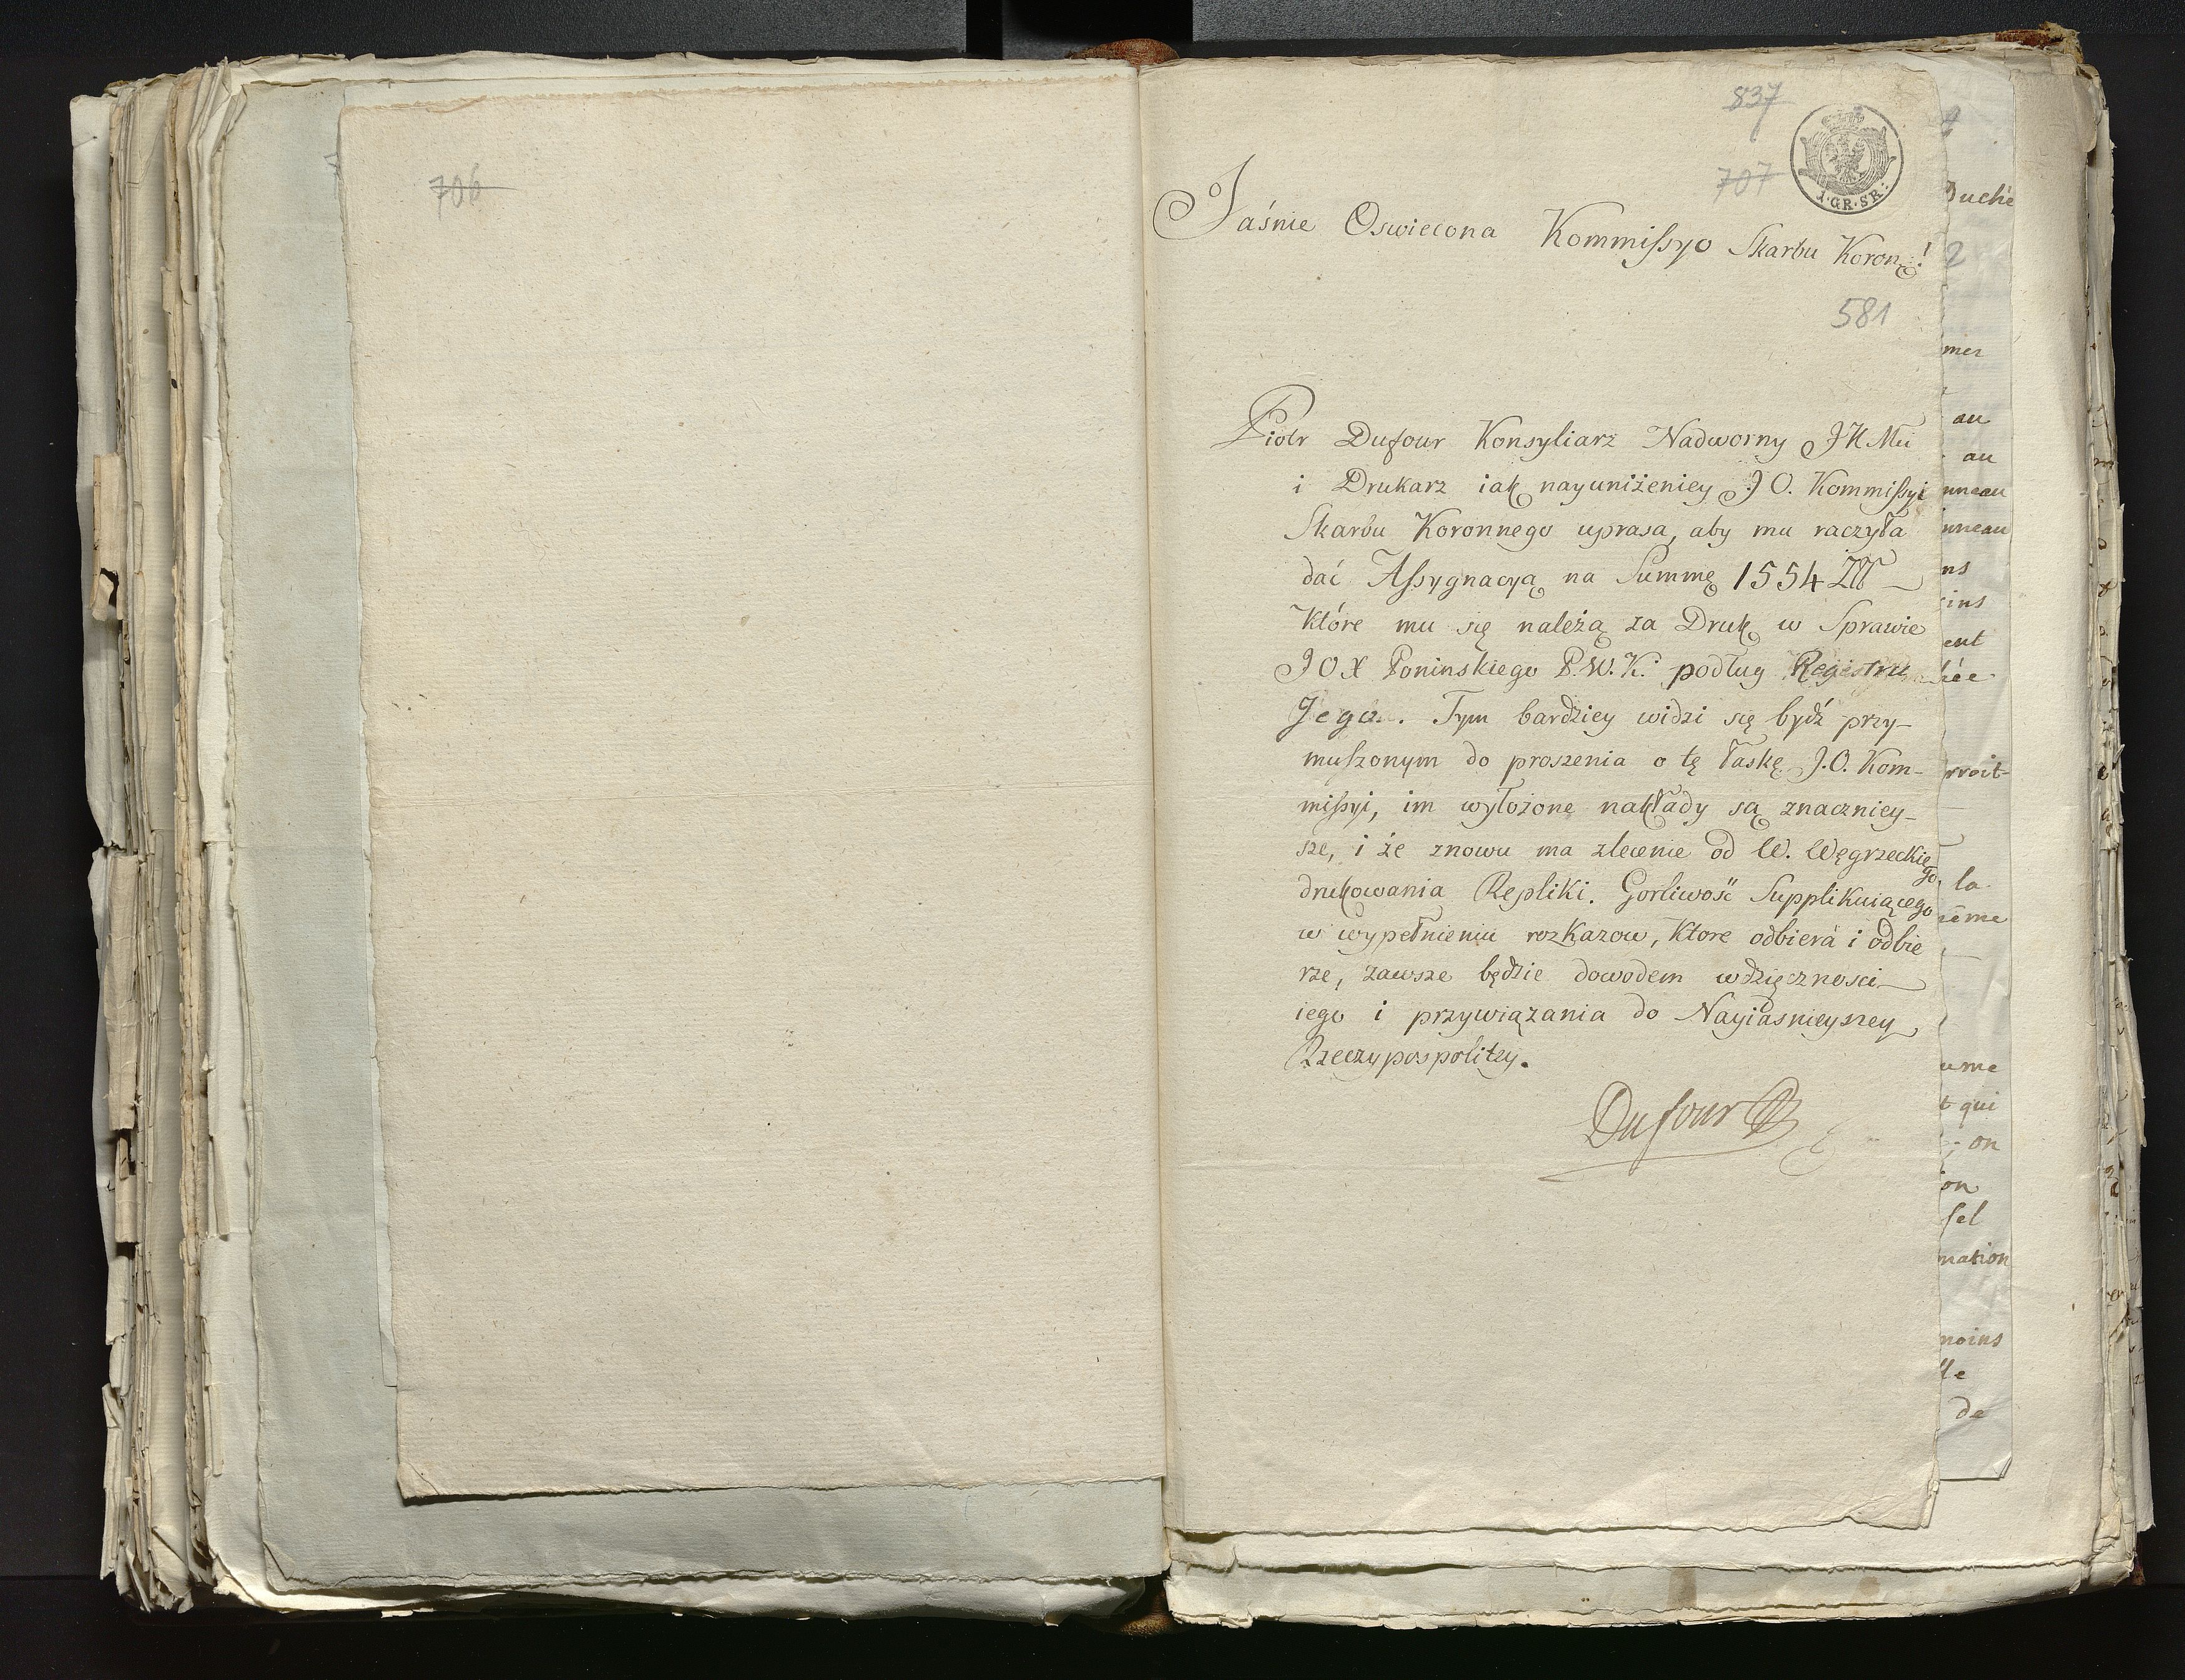 706
837
707
1·GR·SR:
Jaśnie Oswiecona Kommissyo Skarbu Koron:!
581
Piotr Dufour Konsyliarz Nadworny JKMci
i Drukarz iak nayuniżeniey JO. Kommissyi
Skarbu Koronnego uprasa, aby mu raczyła
dać Assygnacyą na Summę 1554 Złł
Które mu się należą za Druk w Sprawie
JOX Poninskiego P.W.K. podług Regestru
Jego. Tym bardziey widzi się bydź przy-
muszonym do proszenia o tę łaskę J.O. Kom-
missyi, im wyłożone nakłady są znaczniey-
sze, i że znowu ma zlecenie od W. Węgrzeckiego
drukowania Repliki. Gorliwość Supplikuiącego
w wypełnieniu rozkazow, Ktore odbierá i odbie
rze, zawsze będzie dowodem wdzięcznosci
iego i przywiązania do Nayiasnieyszey
Rzeczypospolitey.
Dufour
Duché
2
mer
au
au
nneau
nneau
ns
ins
ent
hée
rroit-
la
même
ume
t qui
; on
on
sel
nation
moins
lle
de